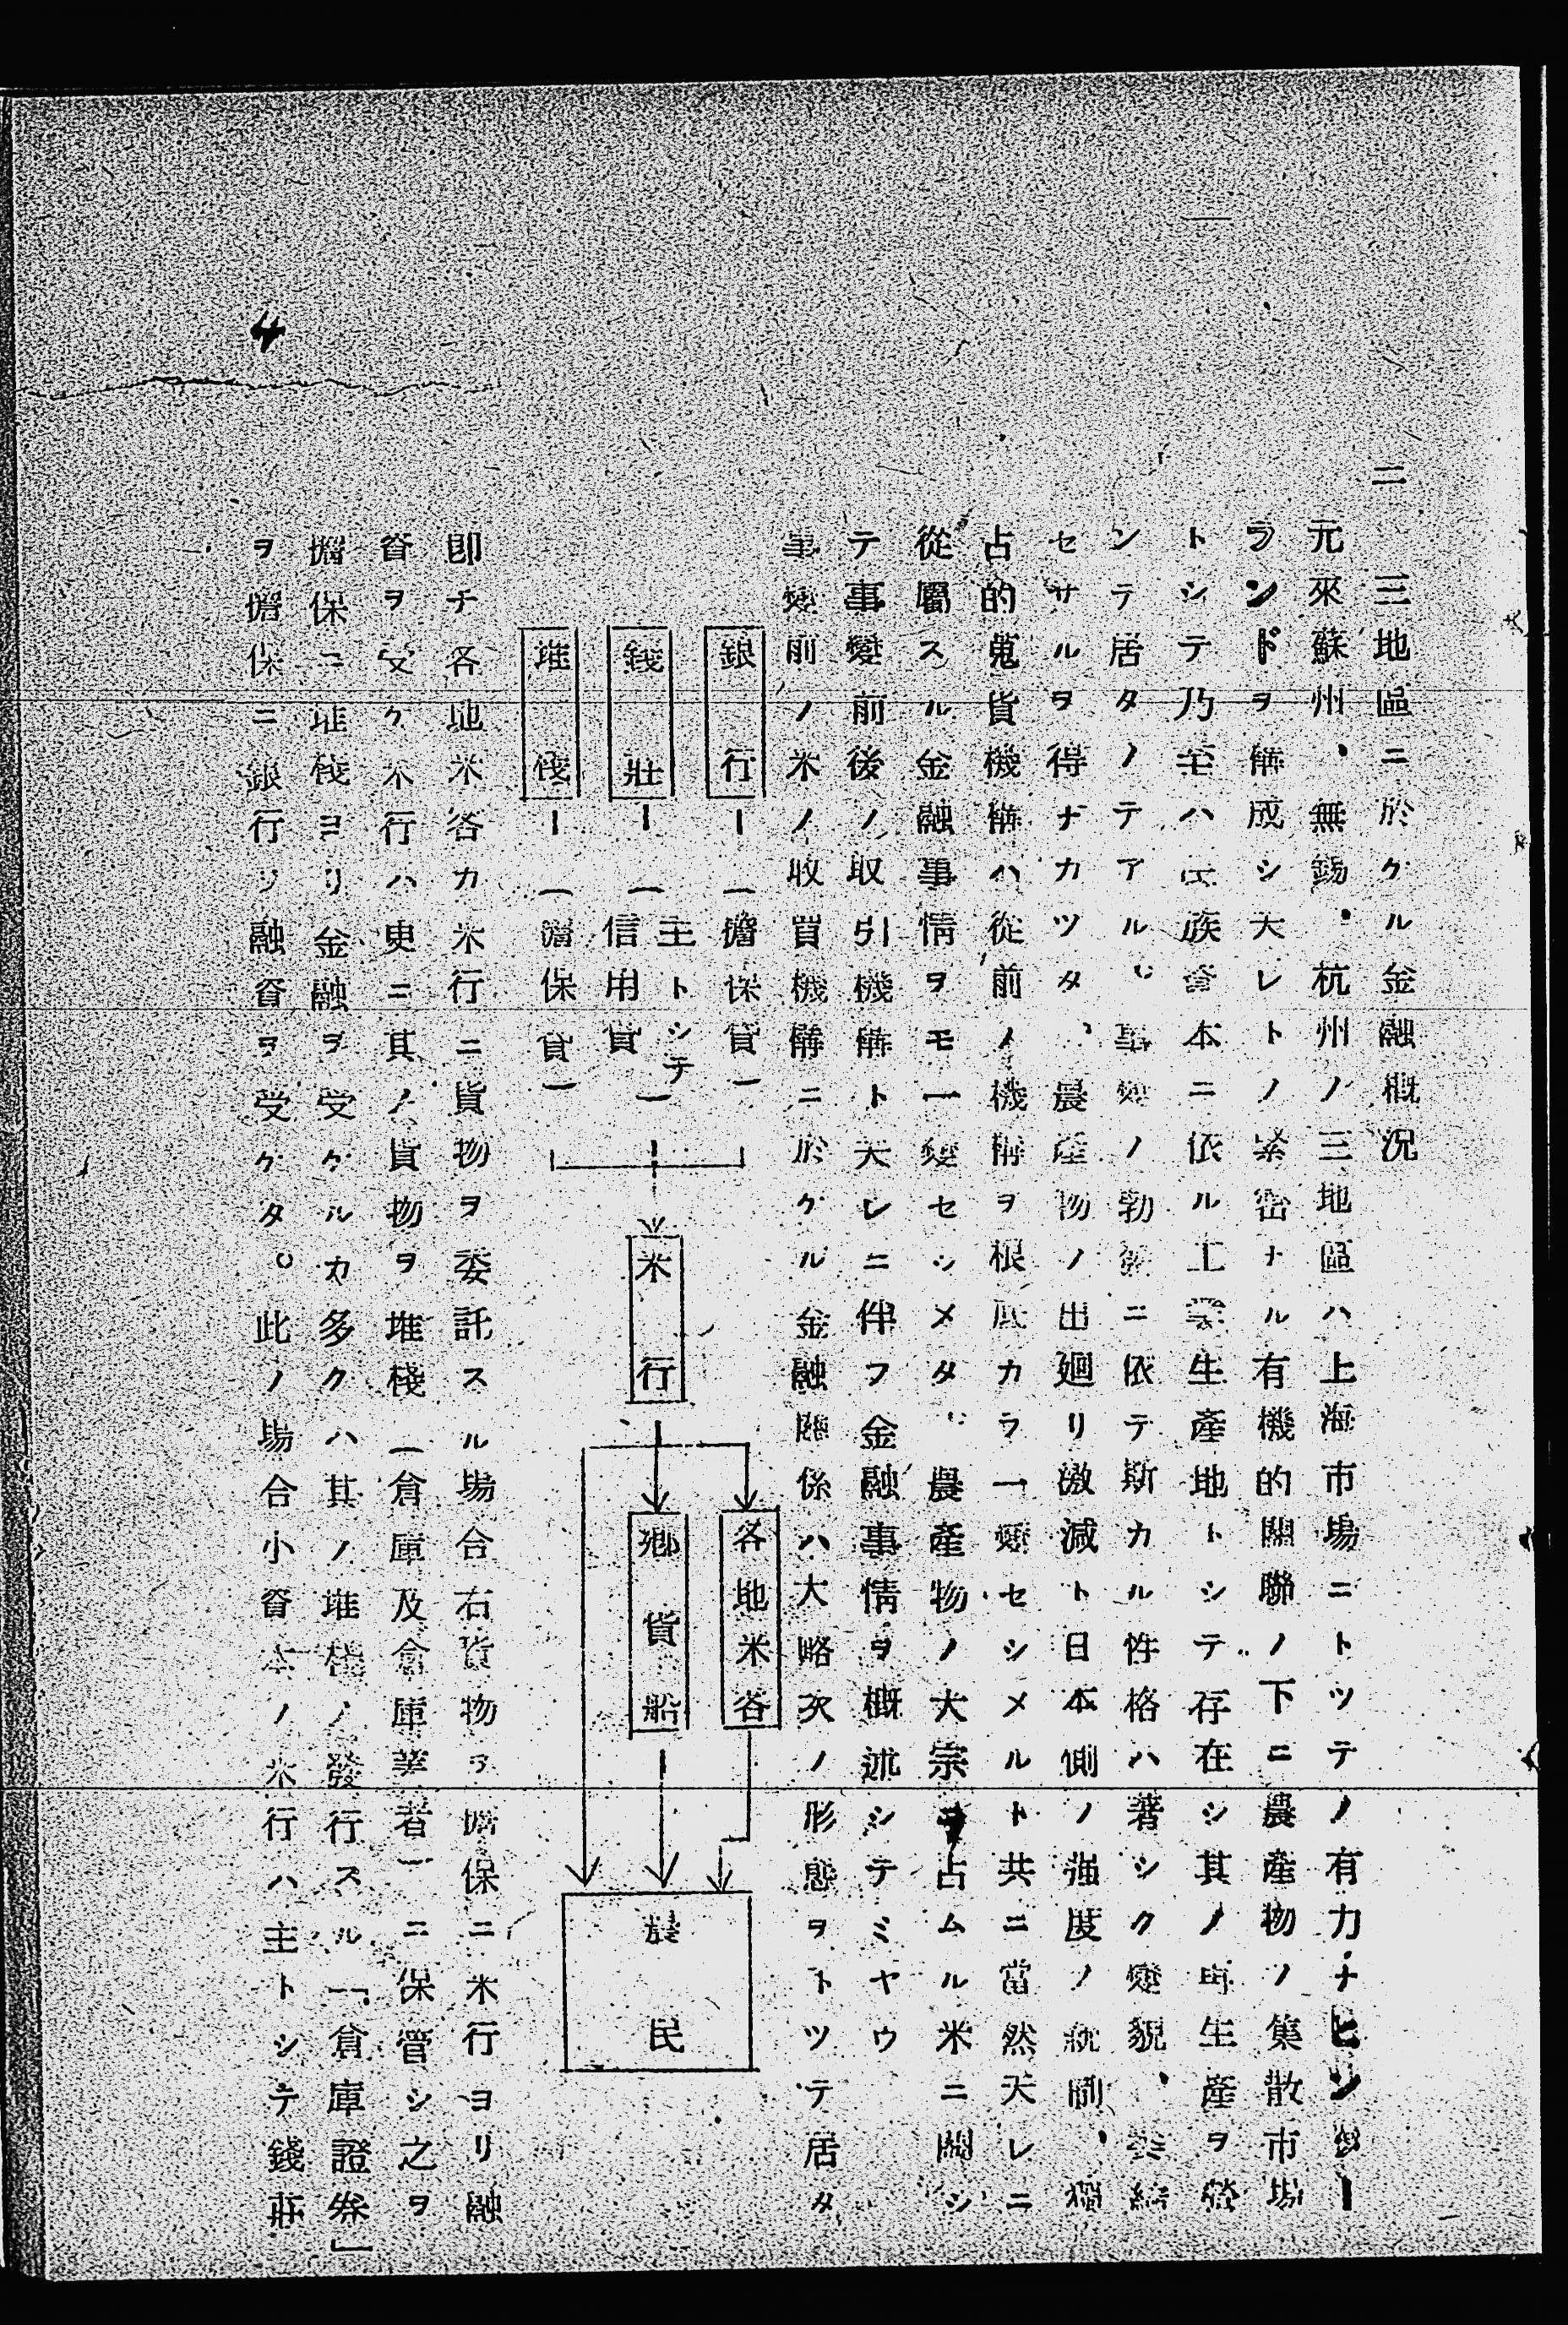 二 三地區ニ於ケル金融概況
元來蘇州、無錫、杭州ノ三地區ハ上海市場ニトツテノ有力ナヒンター
ランドヲ構成シ夫レトノ緊密ナル有機的關聯ノ下ニ農產物ノ集散市場
トシテ乃至ハ民族資本ニ依ル工業生產地トシテ存在シ其ノ再生產ヲ營
ンテ居タノテアル。事變ノ勃發ニ依テ斯カル性格ハ著シク變貌、
セサルヲ得ナカツタ、農產物ノ出廻リ激減ト日本側ノ強度ノ統制、獨
占的蒐貨機構ハ從前ノ機構ヲ根底カラ一變セシメルト共ニ當然夫レニ
從屬スル金融事情ヲモ一變セシメタ。農產物ノ大宗ヲ占ムル米ニ關シ
テ事變前後ノ取引機構ト夫レニ伴フ金融事情ヲ概述シテミヤウ
事變前ノ米ノ收買機構ニ於ケル金融關係ハ大略次ノ形態ヲトツテ居タ
銀行ー(擔保貸)
錢莊ー(主トシテ信用貸)
堆棧ー(擔保貸)
米行
各地米客
鄉貨船
農民
卽チ各地米客カ米行ニ貨物ヲ委託スル場合右貨物ヲ擔保ニ米行ヨリ融
資ヲ受ケ米行ハ更ニ其ノ貨物ヲ堆棧(倉庫及倉庫業者)ニ保管シ之ヲ
擔保ニ堆棧ヨリ金融ヲ受ケルカ多クハ其ノ堆棧ノ發行スル「倉庫證券」
ヲ擔保ニ銀行ノ融資ヲ受ケタ。此ノ場合小資本ノ米行ハ主トシテ錢莊
4